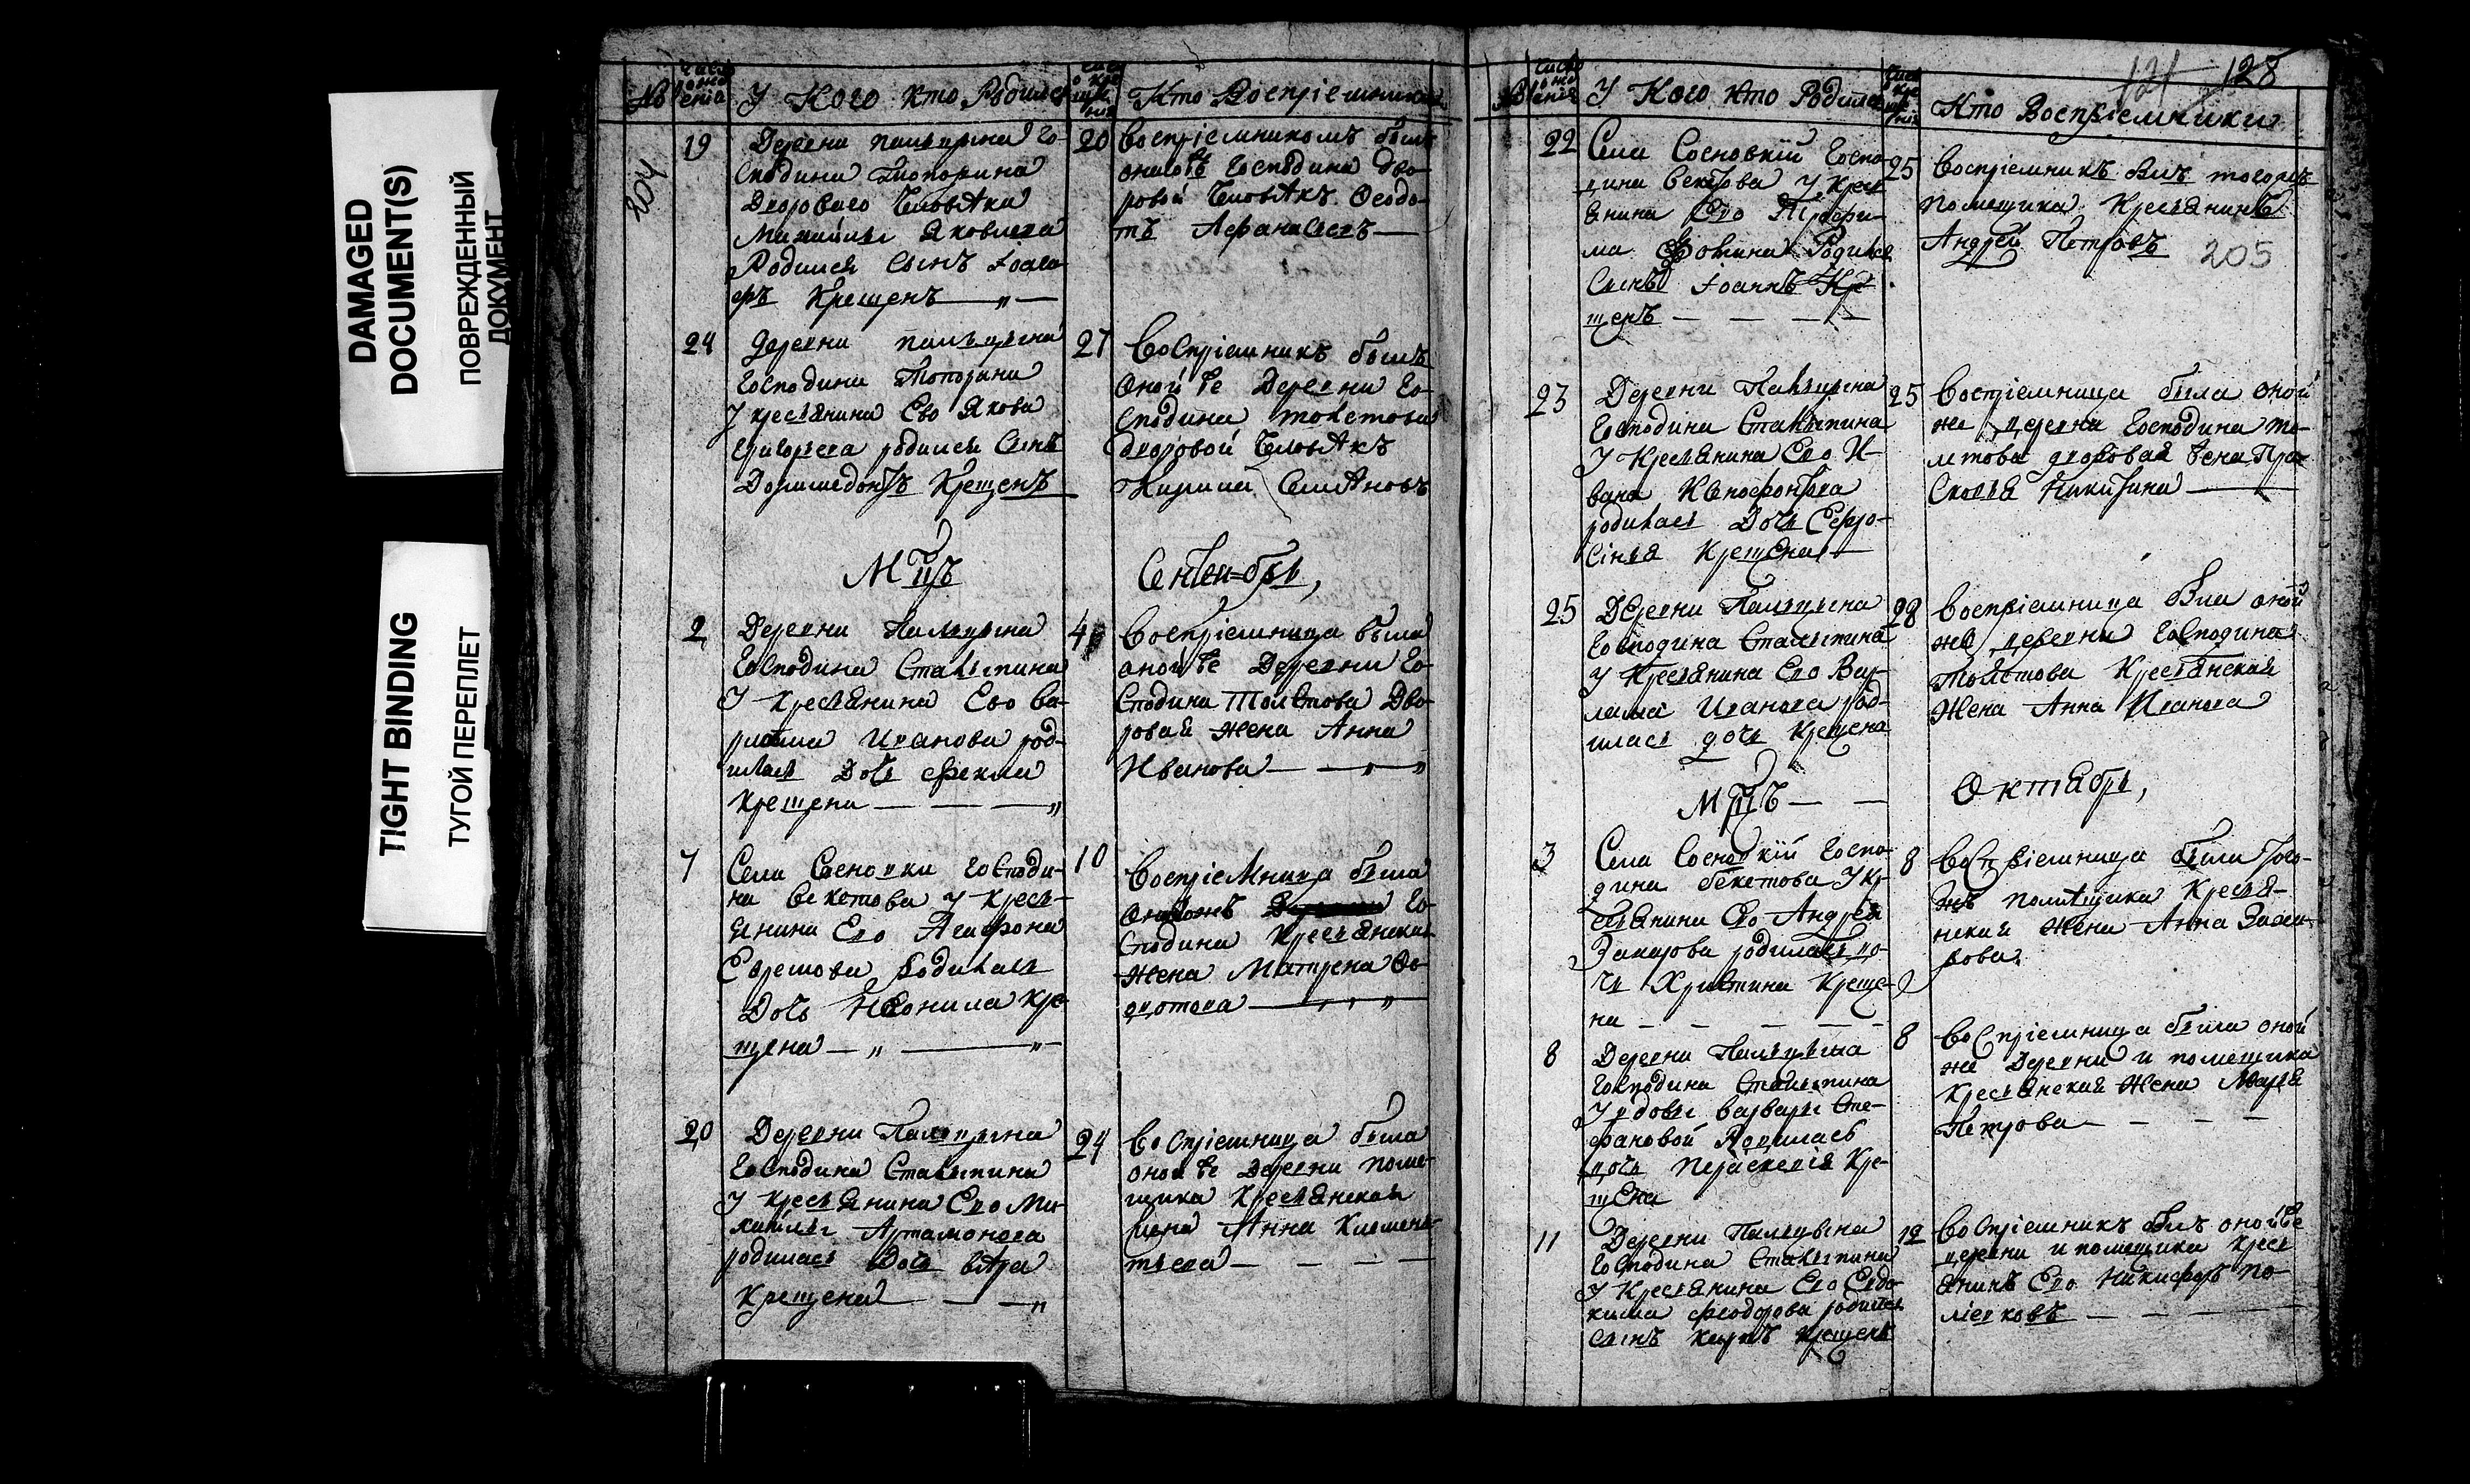 DAMAGED
DOCUMENT(S)
ПОВРЕЖДЕННЫЙ
ДОКУМЕНТ
TIGHT BINDING
ТУГОЙ ПЕРЕПЛЕТ
204
У Кого Кто Родился
Кто Воспріемники
19
Деревни
сподина Топорина
Двороваго человѣка
Михайлы Яковлева
Родился сынъ Іоси-
фъ Крещенъ
20
Воспріемникомъ былъ
господина дво-
ровой человѣкъ Ѳеодо-
тъ Афанасьевъ
24
деревни
господина
У крестьянина Ево Якова
Григорьева родился Сынъ
Доримедонтъ Крещенъ
27
Воспріемникъ былъ
оной же Деревни Го-
сподина
дворовой человѣкъ
Семѣновъ
Мцъ
Сентябрь,
2
Деревни
Господина Сталыпина
У крестьянина Ево Ва-
рлама Иванова род-
илась Дочь Фекла
Крещена
4
Воспріемница была
оной же Деревни Го-
сподина Толстова Дво-
ровая жена Анна
Иванова
7
Села Сосновки Господи-
на Бекетова у крест-
янина Ево Агафона
Ефремова Родилась
Дочь Неонила Кре-
щена
10
Воспріемница была
Го-
сподина Крестьянская
жена Матрена Ѳе-
дотова
20
Деревни
Господина Сталыпина
У крестьянина Ево Ми-
хайлы Артамонова
родилась Дочь вѣра
Крещена
24
Воспріемница была
оной же Деревни поме-
щика Крестьянская
жена Анна Климен-
тьева
121 128
У Кого Кто Родился
Кто Воспріемники
22
Села Господ-
дина Бекетова У крест-
янина Ево Трофи-
ма Фомина Родился
Сынъ Іоаннъ Кре-
щенъ
25
Воспріемникъ былъ тогожъ
помещика Крестьянинъ
Андрей Петровъ
205
23
Деревни
Господина Сталыпина
У Крестьянина Ево И-
вана Ксенофонтова
родилась Дочь Ефро-
сінья Крещена
25
Воспріемница была оной
же деревни Господина то-
лстова дворовая жена Пра-
сковья Никитина
25
Деревни
Господина Сталыпина
У Крестьянина Ево Вар-
лама Иванова род-
илась дочь Крещена
28
Воспріемница была оной
же деревни Господина
Толстова Крестьянская
Жена Анна Иванова
Мцъ
Октябрь,
3
Села Госпо-
дина бекетова У кр-
естьянина Ево Андрея
Захарова родилась до-
чь Христина Креще-
на
8
Воспріемница была того-
жъ помѣщика Крестья-
нская Жена Анна Заха-
рова.
8
Деревни
Господина Сталыпина
У вдовы варвары Сте-
фановой Родилась
дочь Параскевія Кре-
щена
8
Воспріемница была оной
же Деревни и помещика
Крестьянская Жена Марья
Петрова
11
Деревни
Господина Сталыпина
У Крестьянина Ево Евдо-
кима Феодорова родился
сынъ Карпъ Крещенъ
12
Воспріемникъ былъ оной же
деревни и помещика Крест-
янинъ Ево Никифоръ